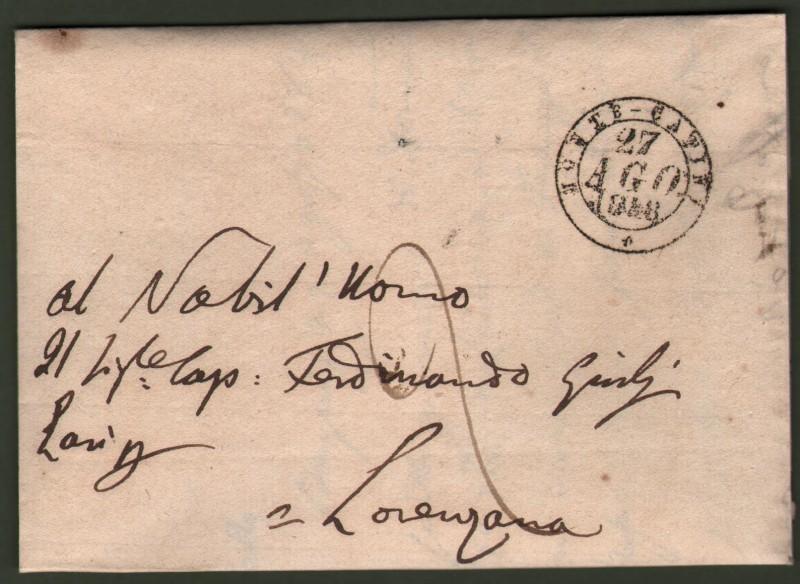 MONTE-CATINI
27
AGO
1848
al Nobil' Uomo
Il Sig.re Cap: Ferdinando Giulj
= Lorenzana